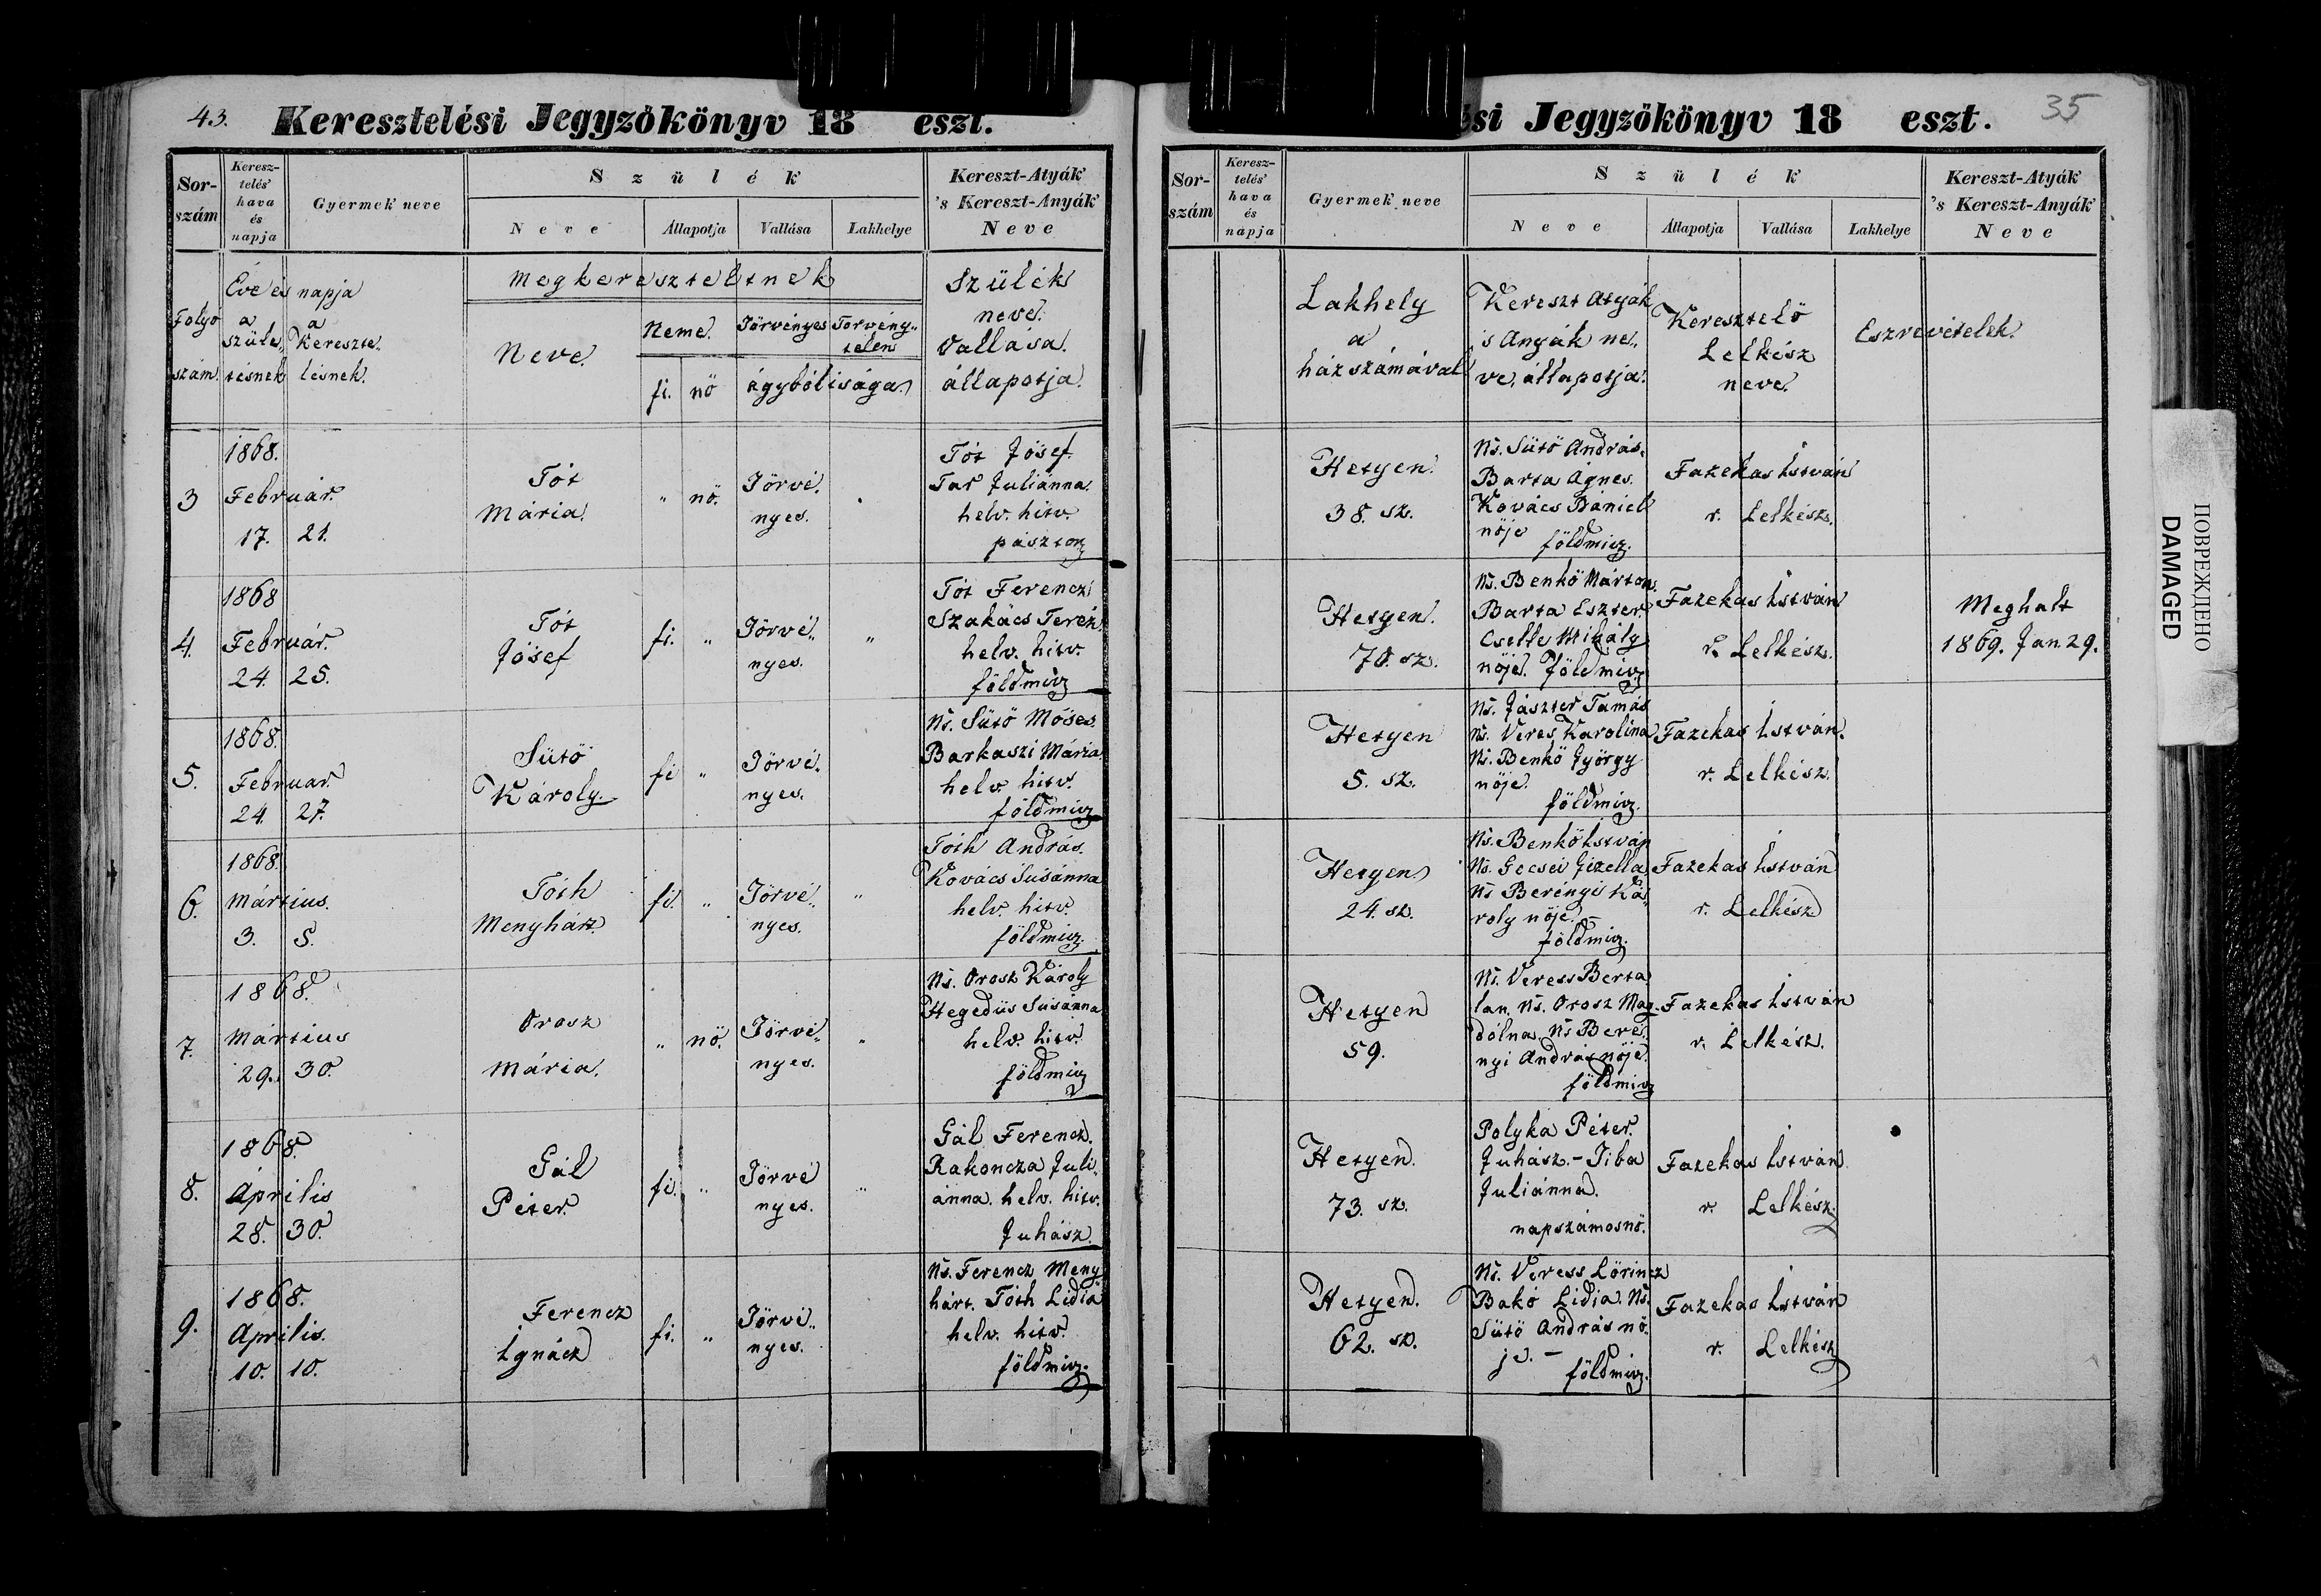 43.
Keresztelési Jegyzőkönyv 18 eszt.
Sor-
szám
Keresz-
telés'
hava
és
napja
Gyermek neve
Szülék
Neve
Állapotja
Vallása
Lakhelye
Kereszt-Atyák
's Kereszt-Anyák
Neve
Folyó
szám.
Éve és napja
a
szüle„
tésnek
a
Kereszte„
lésnek.
Megkereszteltnek
Neve.
Neme.
fi.
nő
Törvényes
Törvény„
telen
ágybóli sága
Szülék
neve.
Vallása.
állapotja.
3
1868.
Február.
17. 21.
Tót
Mária.
„
nő.
Törvé„
nyes.
Tót Jósef.
Tar Juliánna.
helv. hitv.
pásztor
4.
1868
Február.
24. 25.
Tót
Jósef
fi.
„
Törvé„
nyes.
„
Tót Ferencz
Szakács Teréz.
helv. hitv.
földmivz
5.
1868.
Februar.
24. 27.
Sütő
Károly.
fi
„
Törvé„
nyes.
Ns. Sütő Móses.
Barkaszi Mária
helv. hitv.
földmivz
6.
1868.
Mártius.
3. 5.
Tóth
Menyhárt.
fi.
„
Törvé„
nyes.
„
Tóth András.
Kovács Susánna
helv. hitv.
földmivz.
7.
1868.
Mártius
29. 30.
Orosz
Mária.
„
nő.
Törvé„
nyes.
„
Ns. Orosz Károly
Hegedüs Susánna
helv. hitv.
földmivz
8.
1868.
Április
28. 30.
Gál
Péter.
fi.
„
Törvé
nyes.
„
Gál Ferencz.
Rakoncza Juli„
ánna. helv. hitv.
Juhász.
9.
1868.
Aprilis.
10. 10.
Ferencz
Ignácz
fi.
„
Törvé„
nyes.
Ns. Ferencz Meny
hárt. Tóth Lidia
helv. hitv.
földmivz.
ési Jegyzőkönyv 18 eszt.
35
Sor-
szám
Keresz-
telés'
hava
és
napja
Gyermek neve
Szülék
Neve
Állapotja
Vallása
Lakhelye
Kereszt-Atyák
's Kereszt-Anyák
Neve
Lakhely
a
házszámával
Kereszt Atyák
's Anyák ne„
ve, állapotja.
Keresztelő
Lelkész
neve.
Eszrevételek.
Hetyen.
38. sz.
Ns. Sütő András.
Barta Ágnes.
Kovács Dániel
nője
földmivz.
Fazekas István
r. Lelkész.
Hetyen.
70. sz.
Ns. Benkő Márton.
Barta Eszter.
Cselle Mihály
nője. földmivz
Fazekas István
r. Lelkész.
Meghalt
1869. Jan. 29.
Hetyen
5. sz.
Ns. Jászter Tamás
Ns. Veres Karolina
Ns. Benkő György
nője.
földmivz.
Fazekas István.
r. Lelkész.
Hetyen
24. sz.
Ns. Benkő István
Ns. Gecsei Gizella
Ns Berényi Ká„
roly nője. –
földmivz.
Fazekas István
r. Lelkész
Hetyen
59.
Ns. Veress Berta
lan, Ns. Orosz Mag„
dólna, Ns Beré„
nyi András nője.
földmivz
Fazekas István
r. Lelkész.
Hetyen.
73. sz.
Polyka Péter.
Juhász. – Tiba
Juliánna.
napszámosnő.
Fazekas István
r. Lelkész.
Hetyen.
62. sz.
Ns. Veress Lőrincz
Bakó Lidia. Ns.
Sütő András nő„
je. –
földmivz.
Fazekas István
r. Lelkész
ПОВРЕЖДЕНО
DAMAGED